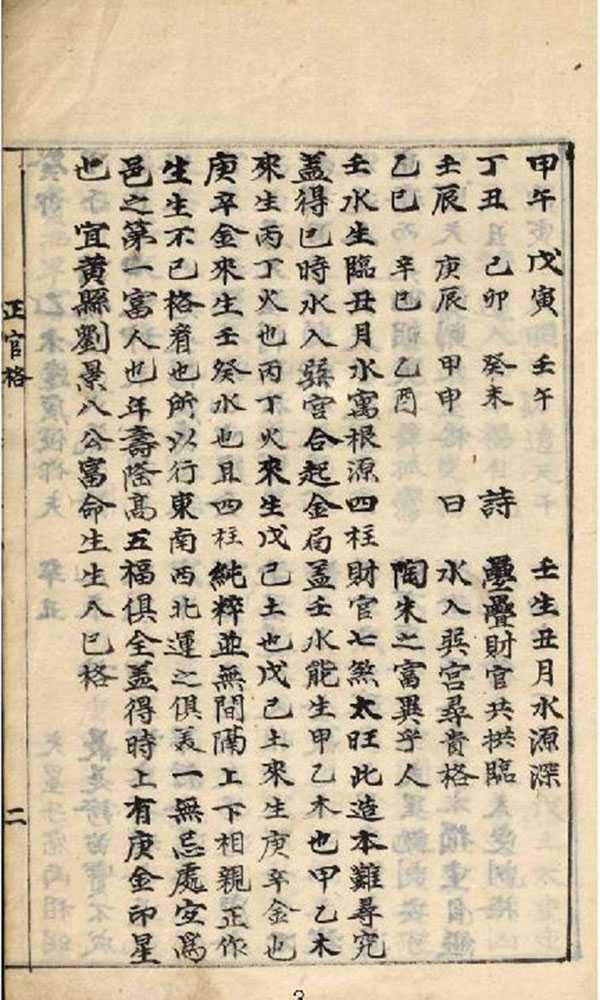 甲午 戊寅 壬午 壬生丑月水源深
丁丑 己卯 癸未 詩 疊疊財官共拱臨
壬辰 庚辰 甲申 曰 水入巽宮尋貴格
乙巳 辛巳 乙酉 陶朱之富異乎人
壬水生臨丑月水寓根源四柱財官七煞太旺此造本難尋究
蓋得巳時水入巽宮合起金局蓋壬水能生甲乙木也甲乙木
來生丙丁火也丙丁火來生戊己土也戊己土來生庚辛金也
庚辛金來生壬癸水也且四柱純粹並無間隔上下相親正作
生生不已格者也所以行東南西北運之俱美一無忌處安為
邑之第一富人也年壽隆高五福俱全蓋得時上有庚金印星
也 宜黃縣劉景八公富命生生八巳格
正官格
二
3